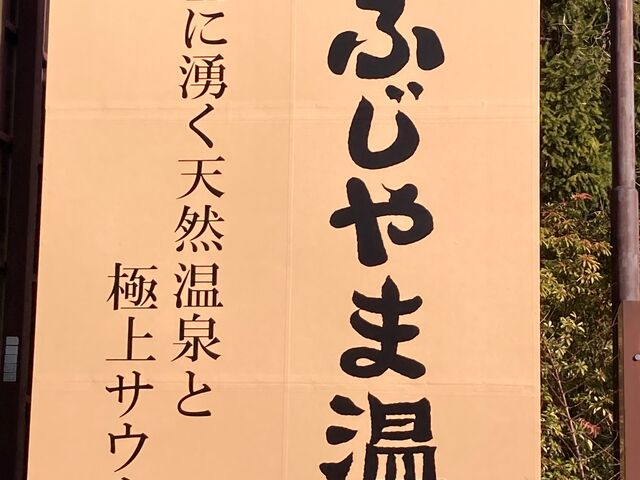 ふじやま温
に湧く天然温泉と
極上サウ